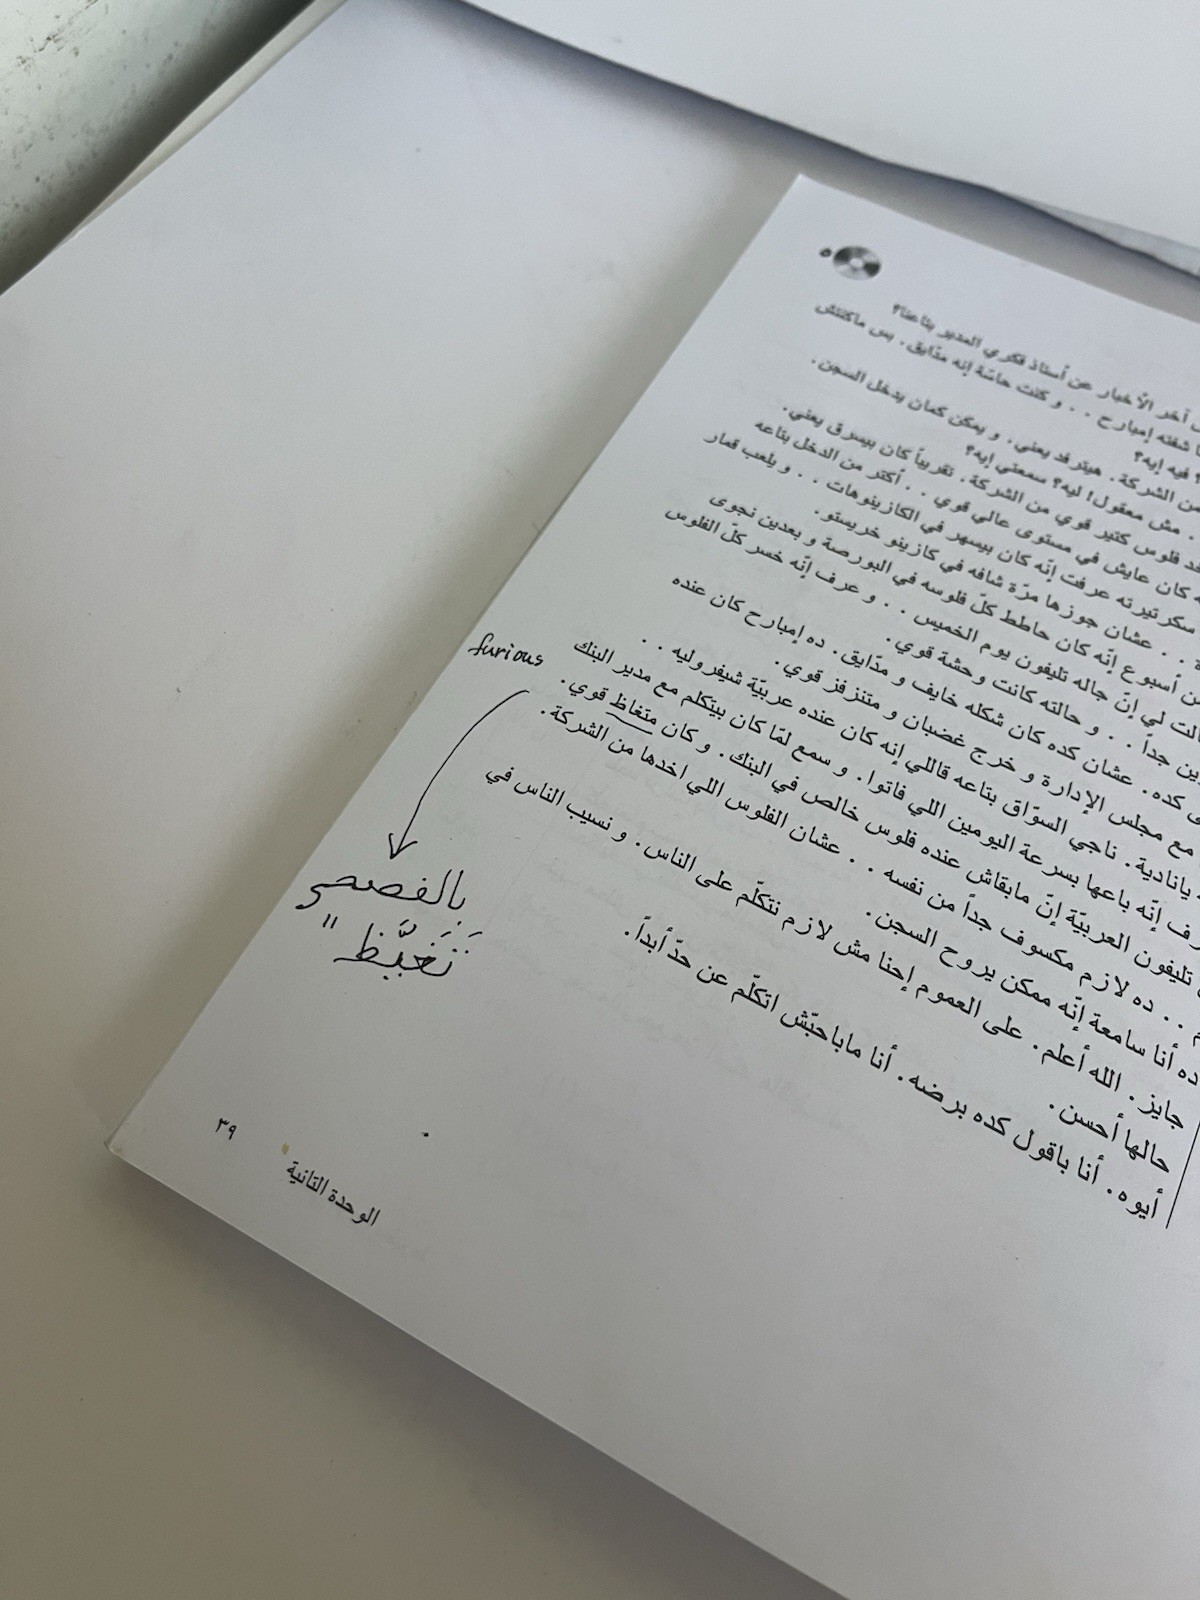 ٥
آخر الأخبار عن أستاذ فكري المدير بتاعنا؟
شفته إمبارح . . و كنت حاسّة إنه مدّايق . بس ماكنتش
فيه إيه؟
من الشركة . هيترفد يعني . و يمكن كمان يدخل السجن .
. مش معقول! ليه؟ سمعتي إيه؟
فلوس كتير قوي من الشركة . تقريباً كان بيسرق يعني .
كان عايش في مستوى عالي قوي . . أكتر من الدخل بتاعه
سكرتيرته عرفت إنّه كان بيسهر في الكازينوهات . . و يلعب قمار
. . عشان جوزها مرّة شافه في كازينو خريستو .
من أسبوع إنّه كان حاطط كلّ فلوسه في البورصة و بعدين نجوى
لي إنّ جاله تليفون يوم الخميس . . و عرف إنّه خسر كلّ الفلوس
جداً . . و حالته كانت وحشة قوي .
كده . عشان كده كان شكله خايف و مدّايق . ده إمبارح كان عنده
مع مجلس الإدارة و خرج غضبان و متنرفز قوي .
يانادية . ناجي السوّاق بتاعه قاللي إنه كان عنده عربيّة شيفروليه . .
إنّه باعها بسرعة اليومين اللي فاتوا . و سمع لمّا كان بيتكلم مع مدير البنك
تليفون العربيّة إنّ مابقاش عنده فلوس خالص في البنك . و كان متغاظ قوي .
. . ده لازم مكسوف جداً من نفسه . . عشان الفلوس اللي اخدها من الشركة .
ده أنا سامعة إنّه ممكن يروح السجن .
جايز . الله أعلم . على العموم إحنا مش لازم نتكلّم على الناس . و نسيب الناس في
حالها أحسن .
أيوه . أنا باقول كده برضه . أنا ماباحبّش اتكلّم عن حدّ أبداً .
furious
بالفصحى
"تَغَيَّظ
٣٩
الوحدة التانية